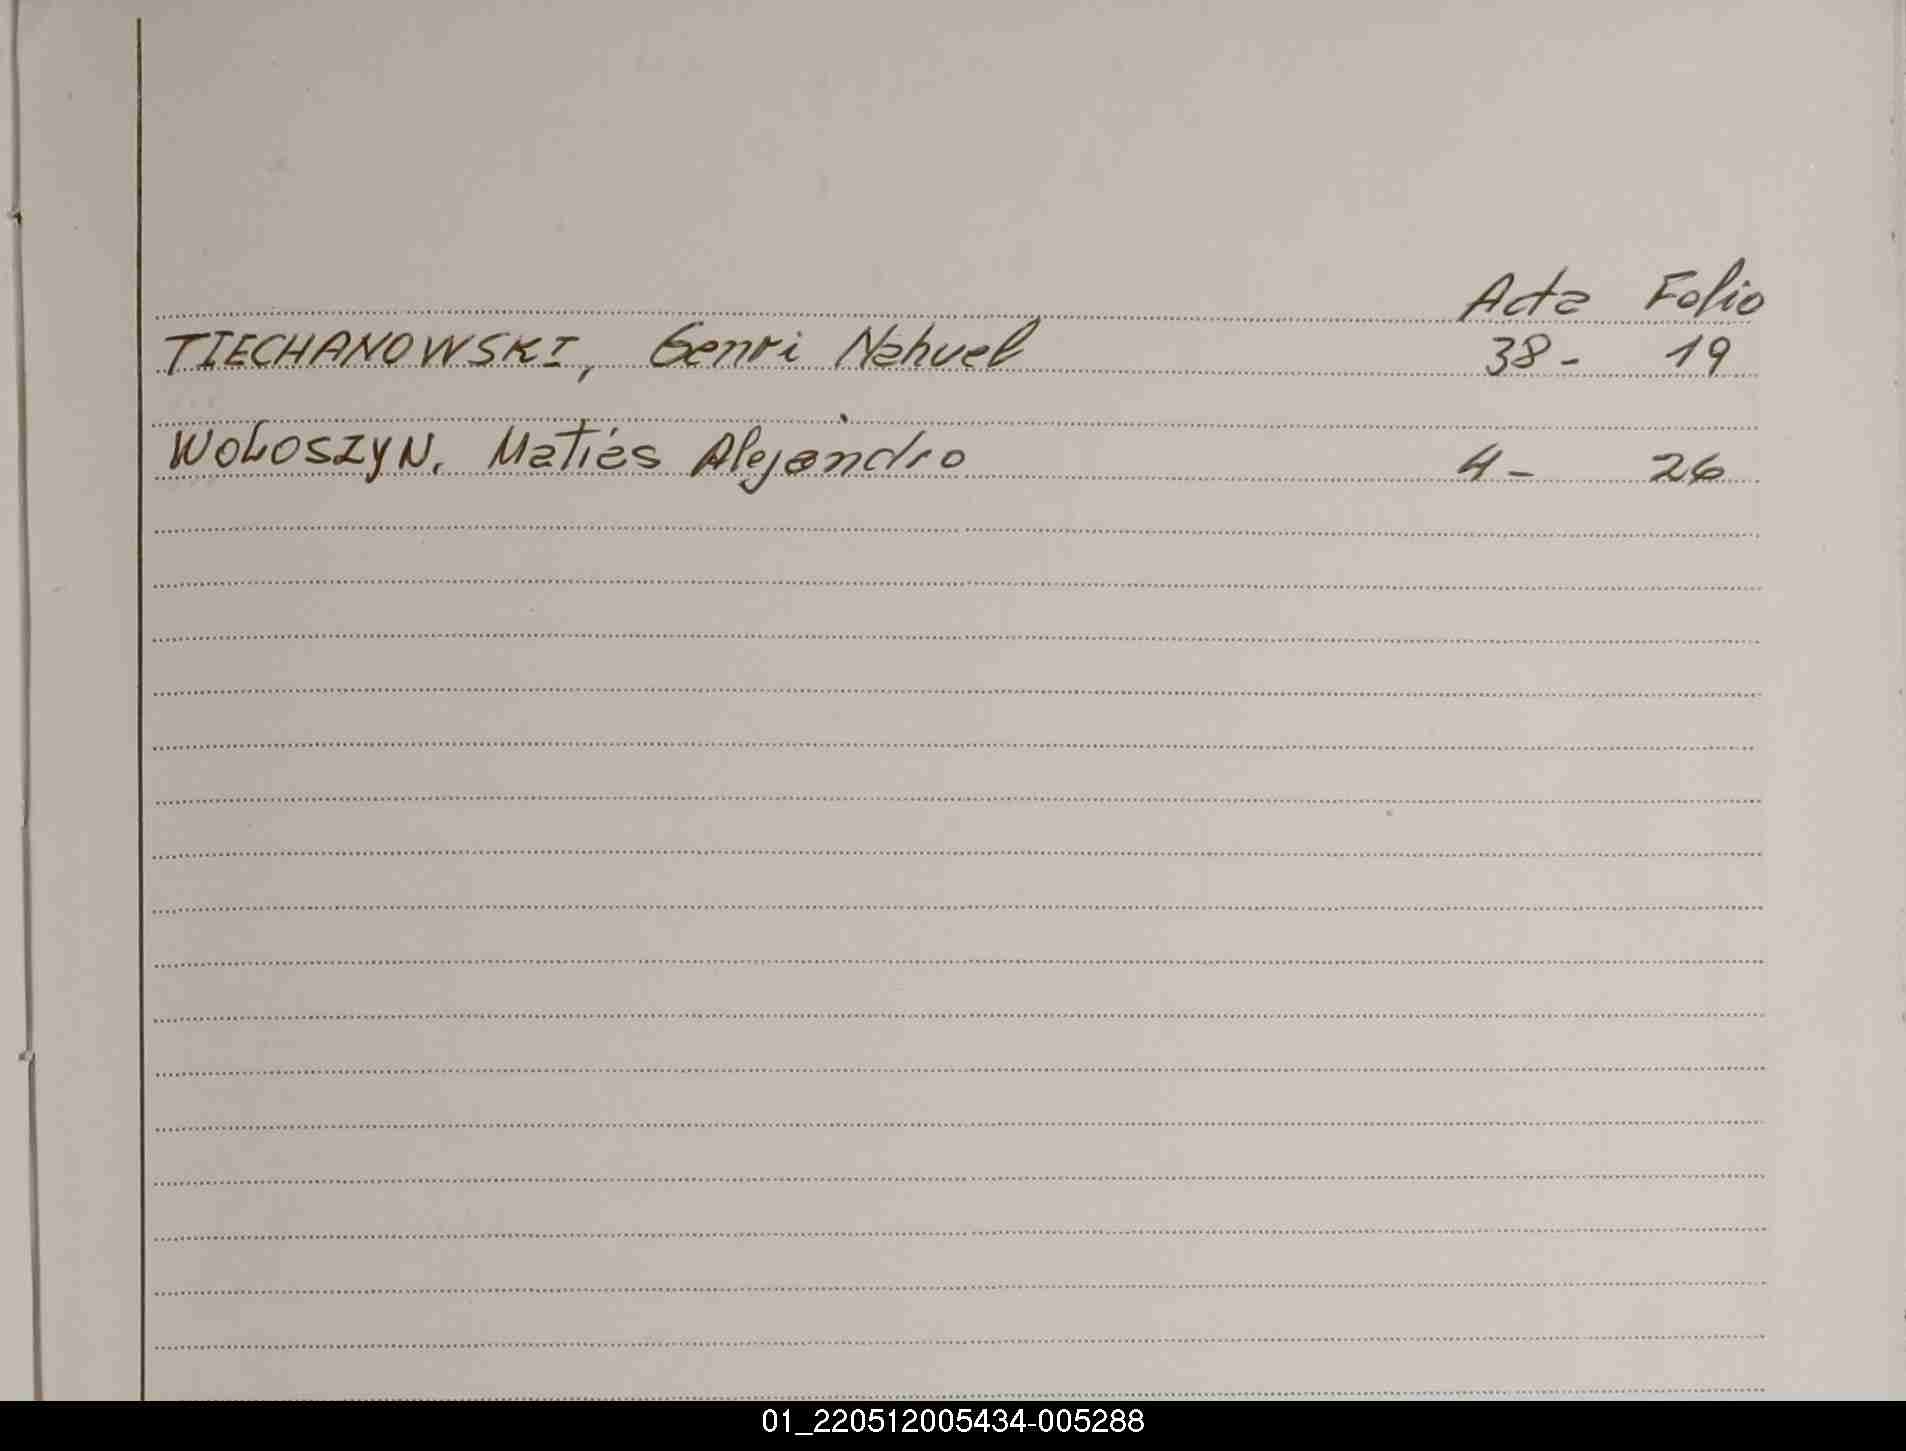 Acta Folio
TIECHANOWSKI, Genri Nahuel 38- 19
WOLOSZYN, Matias Alejandro 4- 26
01_220512005434-005288